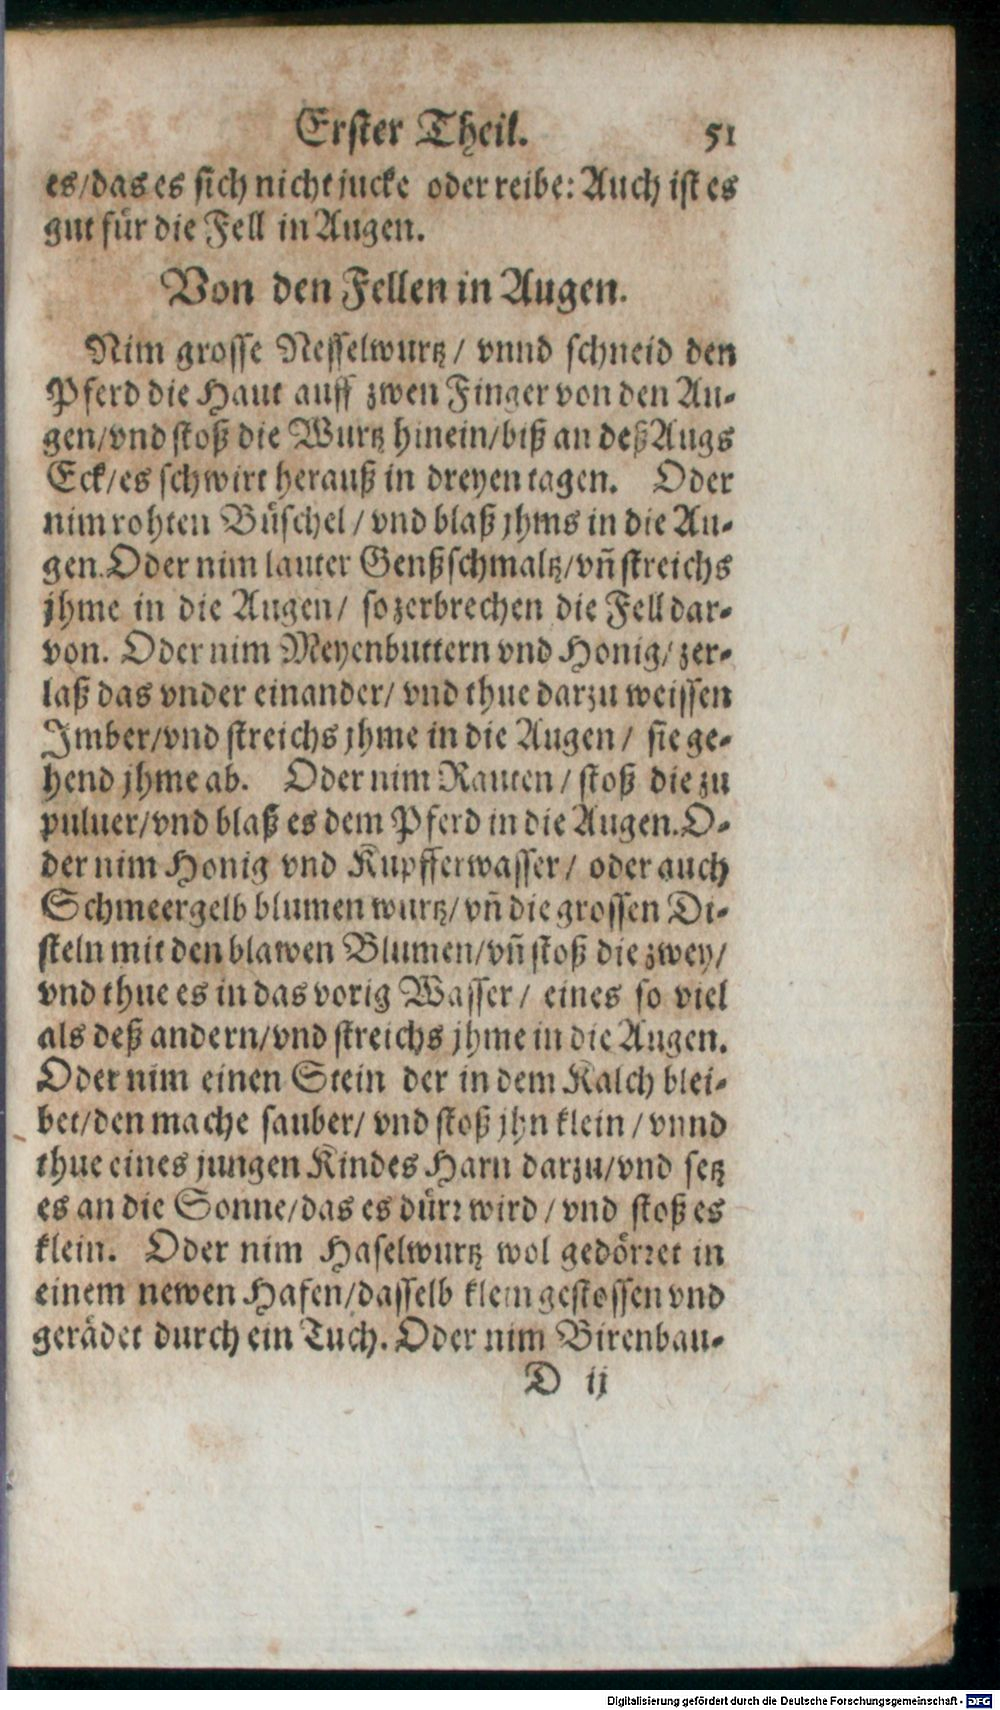 Erster Theil. 51
es/das es sich nicht jucke oder reibe: Auch ist es
gut für die Fell in Augen.
Von den Fellen in Augen.
Nim grosse Nesselwurtz/ vnnd schneid den
Pferd die Haut auff zwen Finger von den Au-
gen/vnd stoß die Wurtz hinein/biß an deß Augs
Eck/es schwirt herauß in dreyen tagen. Oder
nim rohten Büschel/vnd blaß jhms in die Au-
gen. Oder nim lauter Genßschmaltz/vñ streichs
jhme in die Augen/ so zerbrechen die Fell dar-
von. Oder nim Meyenbuttern vnd Honig/zer-
laß das vnder einander/ vnd thue darzu weissen
Imber/vnd streichs jhme in die Augen/ sie ge-
hend jhme ab. Oder nim Rauten/stoß die zu
puluer/vnd blaß es dem Pferd in die Augen. O-
der nim Honig vnd Kupfferwasser/ oder auch
Schmeergelb blumen wurtz/vñ die grossen Di-
steln mit den blawen Blumen/vñ stoß die zwey/
vnd thue es in das vorig Wasser/ eines so viel
als deß andern/vnd streichs jhme in die Augen.
Oder nim einen Stein der in dem Kalch blei-
bet/den mache sauber/ vnd stoß jhn klein/vnnd
thue eines jungen Kindes Harn darzu/vnd setz
es an die Sonne/das es dürr wird/vnd stoß es
klein. Oder nim Haselwurtz wol gedörret in
einem newen Hafen/dasselb klein gestossen vnd
gerädet durch ein Tuch. Oder nim Birenbau-
D ij
Digitalisierung gefördert durch die Deutsche Forschungsgemeinschaft - DFG